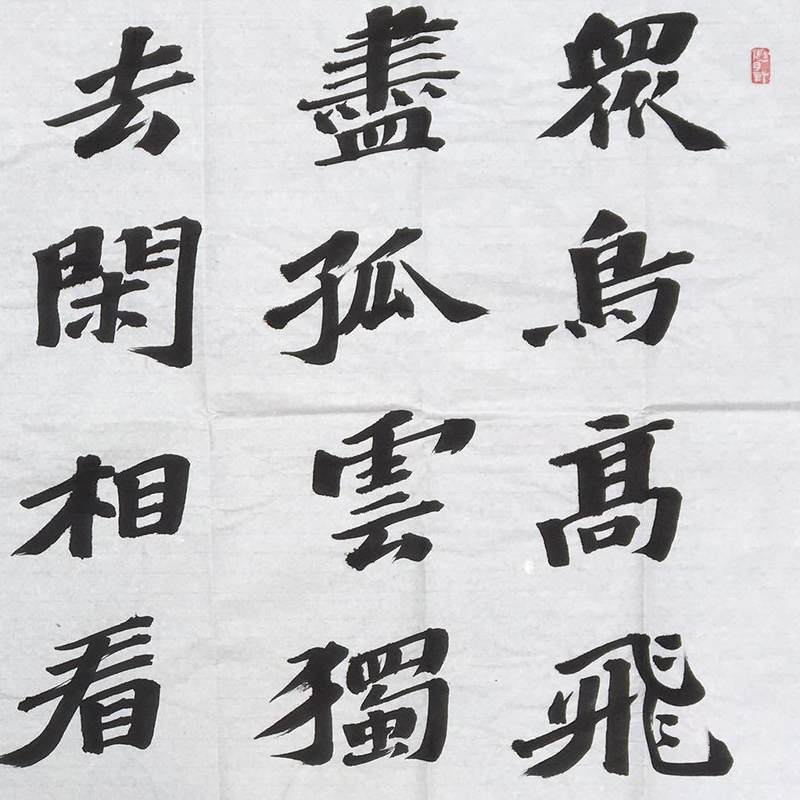 眾鳥高飛
盡孤雲獨
去閑相看